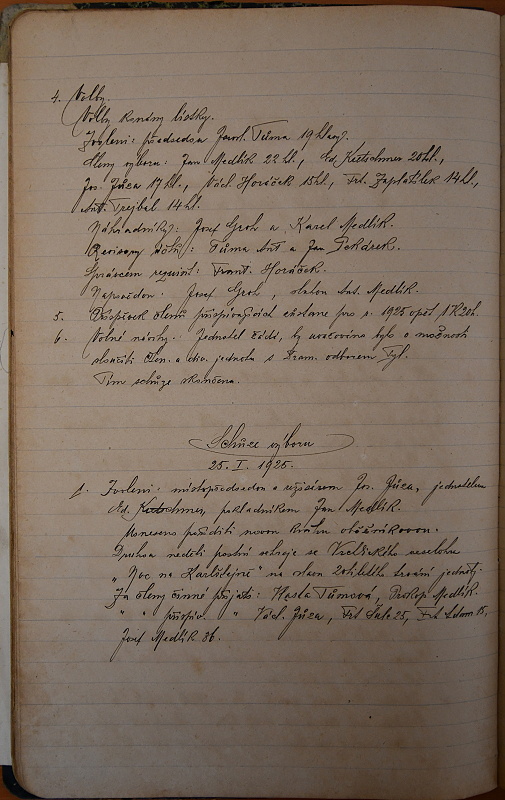 4. Volby.
Volby konány lístky.
Zvoleni: předsedou Jarosl. Tůma 19 hlasy.
Členy výboru: Jan Medlík 22 hl., Ed. Kretschmer 20 hl.,
Jos. Jůza 17 hl., Václ. Horáček 15 hl., Frt. Zaplatílek 14 hl.,
Ant. Trejbal 14 hl.
Náhradníky: Josef Groh a Karel Medlík.
Revisory účtů: Tůma Ant a Jan
Správcem requisit: Frant. Horáček.
Napovědou: Josef Groh, Ant. Medlík.
5. Příspěvek členů přispívajících zůstane pro r. 1925 opět 1 K 20 h.
6. Volné návrhy. Jednatel žádá, by uvažováno bylo o možnosti
sloučiti Čten. a div. jednotu s Dram. odborem Tyl.
Tím schůze skončena.
Schůze výboru
25. I. 1925.
1. Zvoleni: místopředsedou a režisérem Jos. Jůza, jednatelem
Ed. Kretschmer, pokladníkem Jan Medlík.
Usneseno poříditi novou
Druhou neděli postní sehraje se Vrchlického veselohra
„Noc na Karlštejně“ na oslavu 20tiletého trvání jednoty.
Za členy činné přijati: Tůmová, Prokop Medlík.
" " přispív. " Václ. Jůza, Frt 25, Frt 15,
Josef Medlík 86.